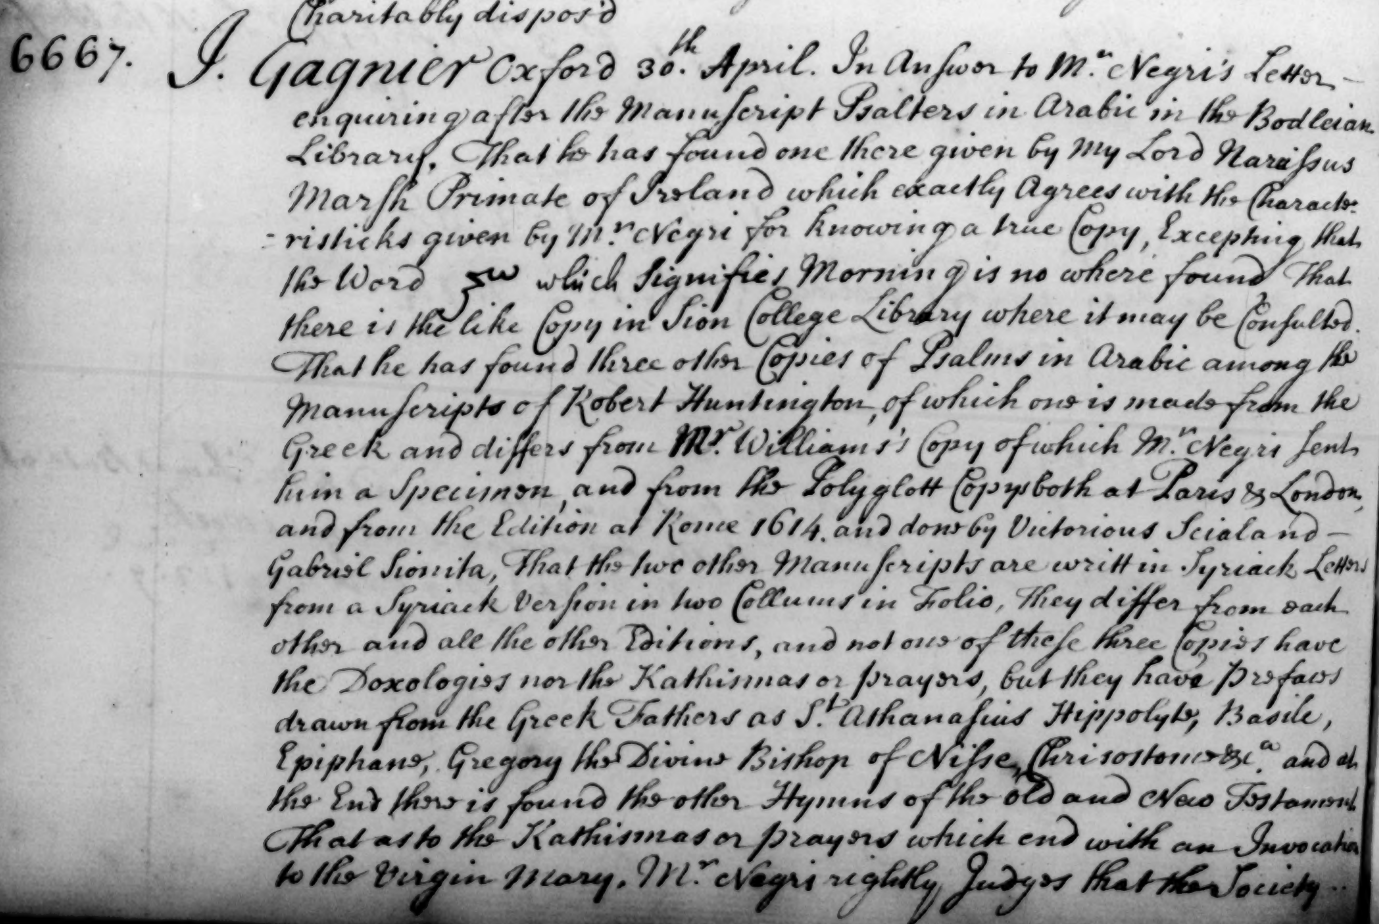 Charitably dispos'd
6667. J. Gagnier Oxford 30.th April. In Answer to M.r Negri's Letter –
enquiring after the Manuscript Psalters in Arabic in the Bodleian
Library. That he has found one there given by My Lord Narcissus
Marsh Primate of Ireland which exactly Agrees with the Characte-
-risticks given by M.r Negri for knowing a true Copy, Excepting that
the Word which Signifies Morning is no where found That
there is the like Copy in Sion College Library where it may be Consulted.
That he has found three other Copies of Psalms in Arabic among the
Manuscripts of Robert Huntington, of which one is made from the
Greek and differs from Mr. Williams's Copy of which M.r Negri sent
him a Specimen, and from the Polyglott Copys both at Paris & London,
and from the Edition at Rome 1614. and done by Victorious Scialand –
Gabriel Sionita, That the two other Manuscripts are writt in Syriack Letters
from a Syriack Version in two Collums in Folio, They differ from each
other and all the other Editions, and not one of these three Copies have
the Doxologies nor the Kathismas or prayers, but they have Prefaces
drawn from the Greek Fathers as S.t Athanasius Hippolyte, Basile,
Epiphane, Gregory the Divine Bishop of Nisse, Chrisostome &c.a and at
the End there is found the other Hymns of the Old and New Testament
That as to the Kathismas or prayers which end with an Invocation
to the Virgin Mary. M.r Negri rightly Judges that the Society ..